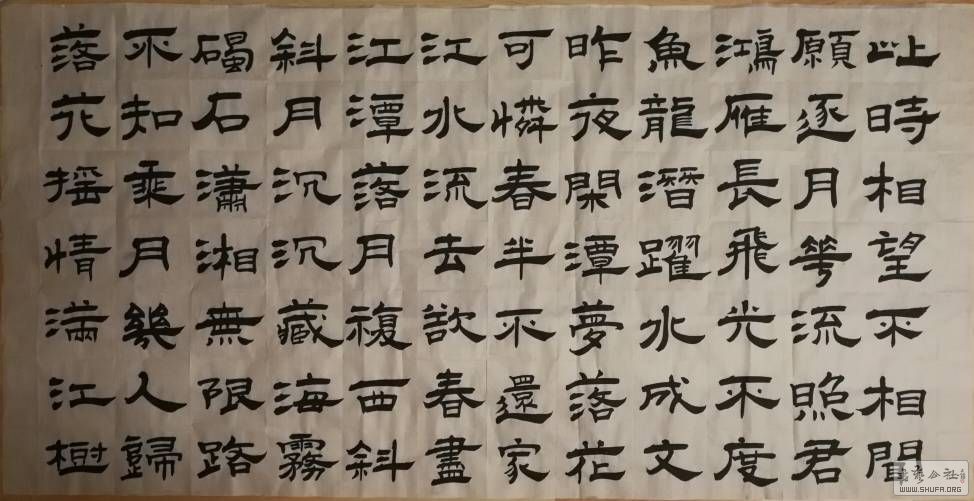 此時相望不相聞
願逐月華流照君
鴻雁長飛光不度
魚龍潛躍水成文
昨夜閑潭夢落花
可憐春半不還家
江水流去欲春盡
江潭落月複西斜
斜月沉沉藏海霧
碣石瀟湘無限路
不知乘月幾人歸
落花搖情滿江樹
WWW.SHUFA.ORG